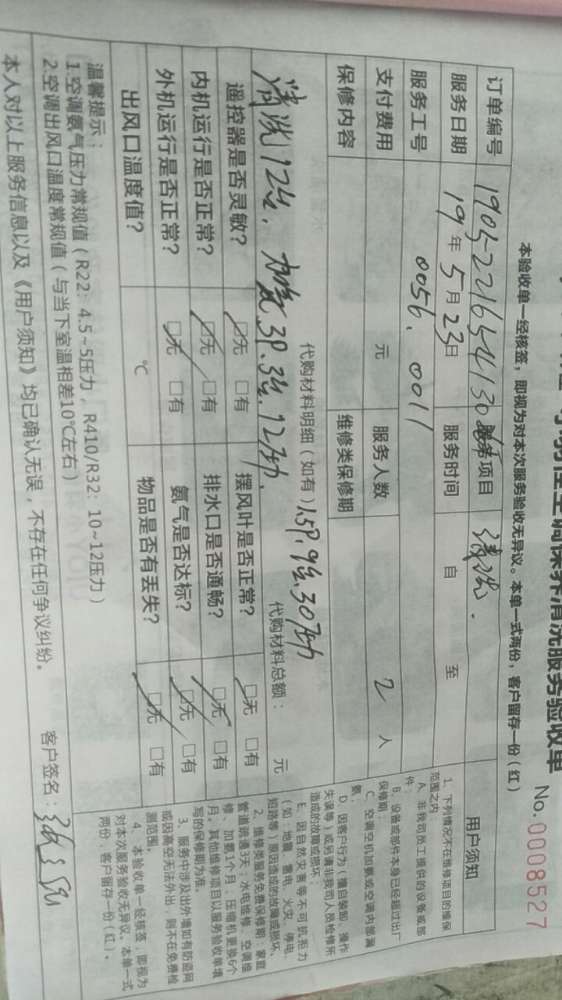 空调保养清洗服务验收单
No. 0008527
本验收单一经核签，即视为对本次服务验收无异议。本单一式两份，客户留存一份（红）
订单编号 服务项目 清洗.
服务日期 19年5月23日 服务时间 自 至
服务工号 0056. 0011
支付费用 元 服务人数 2人
保修内容 维修类保修期
代购材料明细（如有） 代购材料总额： 元
清洗12台. 加氨3P.3台.12压力. 1.5P.9台.30压力
遥控器是否灵敏？ □无 □有 摆风叶是否正常？ □无 □有
内机运行是否正常？ □无 □有 排水口是否通畅？ □无 □有
外机运行是否正常？ □无 □有 氨气是否达标？ □无 □有
出风口温度值？ ℃ 物品是否有丢失？ □无 □有
温馨提示：
1.空调氨气压力常规值（R22：4.5~5压力，R410/R32：10~12压力）
2.空调出风口温度常规值（与当下室温相差10℃左右）
本人对以上服务信息以及《用户须知》均已确认无误，不存在任何争议纠纷。
客户签名：
用户须知
1、下列情况不在维修项目的维保
范围之内
A、非我司员工提供的设备或部
件
B、设备或部件本身已经超过出厂
保修期；
C、空调空机加氨或空调内部漏
氨；
D、因客户行为（擅自装卸、操作
失误等）或另请非我司人员检修所
造成的故障或损坏；
E、因自然灾害等不可抗拒力
（如：地震、雷电、火灾、停电、
短路等）原因造成的故障或损坏。
2、维修类服务免费保修期：家庭
管道疏通3天；水电维修、空调维
修、加氨1个月，压缩机更换6个
月。其他维修项目以服务验收单填
写的保修期为准。
3、服务中涉及出外墙如有防盗网
或因高空无法外出，则不在免费检
测范围。
4、本验收单一经核签，即视为
对本次服务验收无异议。本单一式
两份，客户留存一份（红）。